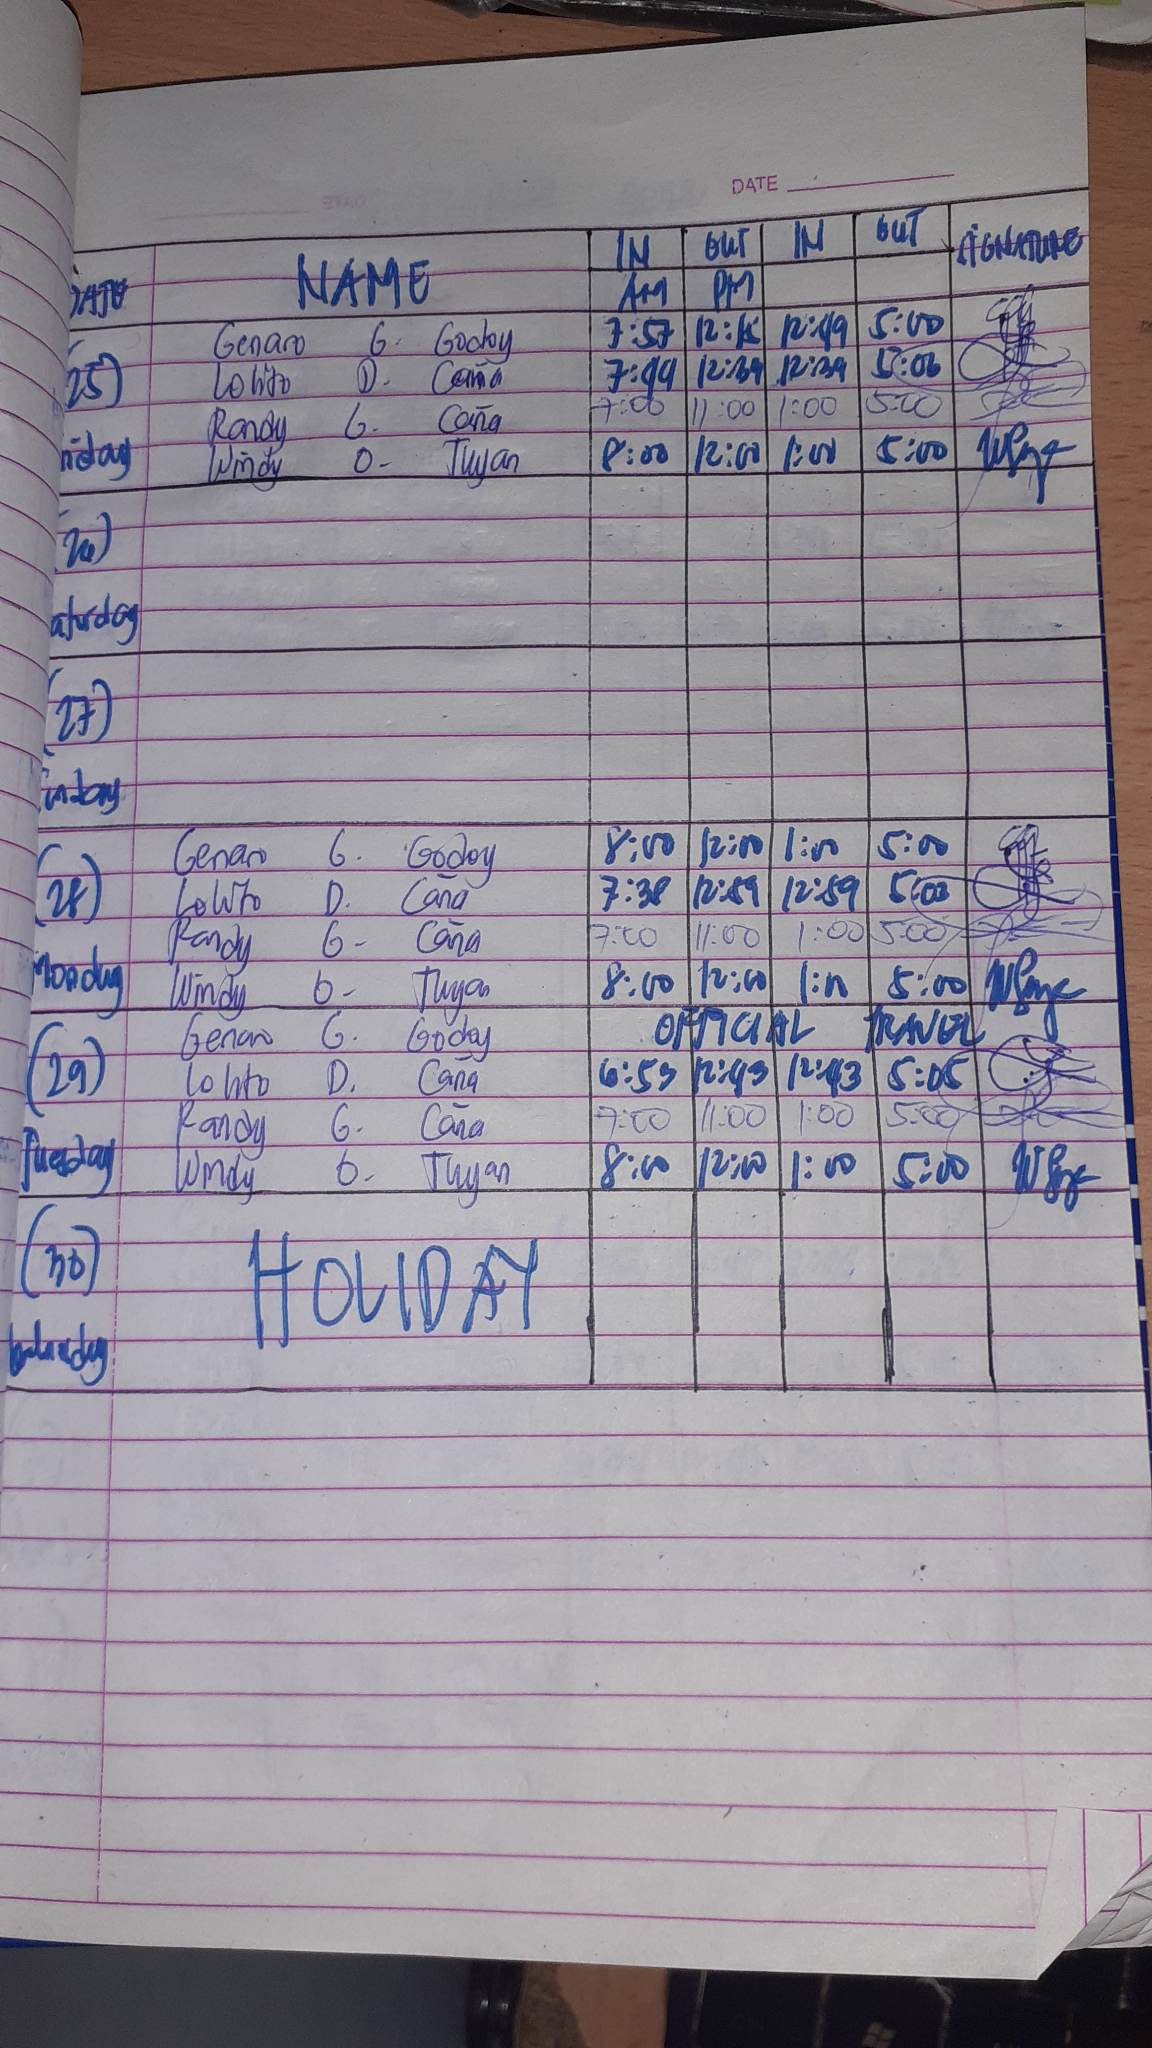 DATE
IN OUT IN OUT SIGNATURE
NAME
AM PM
Genaro G. Godoy 7:57 12:15 12:49 5:00
(25) Lolito D. Caña 7:44 12:39 12:39 5:06
Randy G. Caña 7:00 11:00 1:00 5:00
Windy O- Tuyan 8:00 12:00 1:00 5:00
(26)
aturday
(27)
unday
Genaro G. Godoy 8:00 12:00 1:00 5:00
(28) Lolito D. Caña 7:38 12:59 12:59 5:03
Randy G- Caña 7:00 11:00 1:00 5:00
Monday Windy O- Tuyan 8:00 12:00 1:00 5:00
Genaro G. Godoy OFFICIAL TRAVEL
(29) Lolito D. Caña 6:53 12:43 12:43 5:05
Randy G. Caña 7:00 11:00 1:00 5:00
Tuesday Windy O- Tuyan 8:00 12:00 1:00 5:00
(30) HOLIDAY